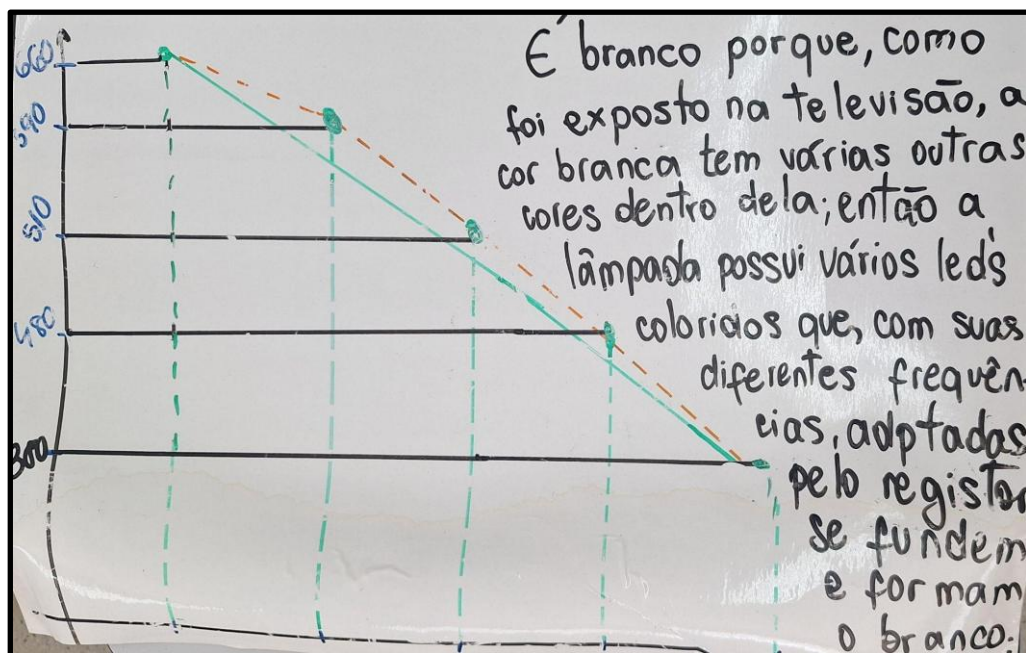 É branco porque, como
foi exposto na televisão, a
cor branca tem várias outras
cores dentro dela; então a
lâmpada possui vários led's
coloridos que, com suas
diferentes frequên-
cias, adptadas
pelo registor
se fundem
e formam
o branco.
660
590
510
480
300